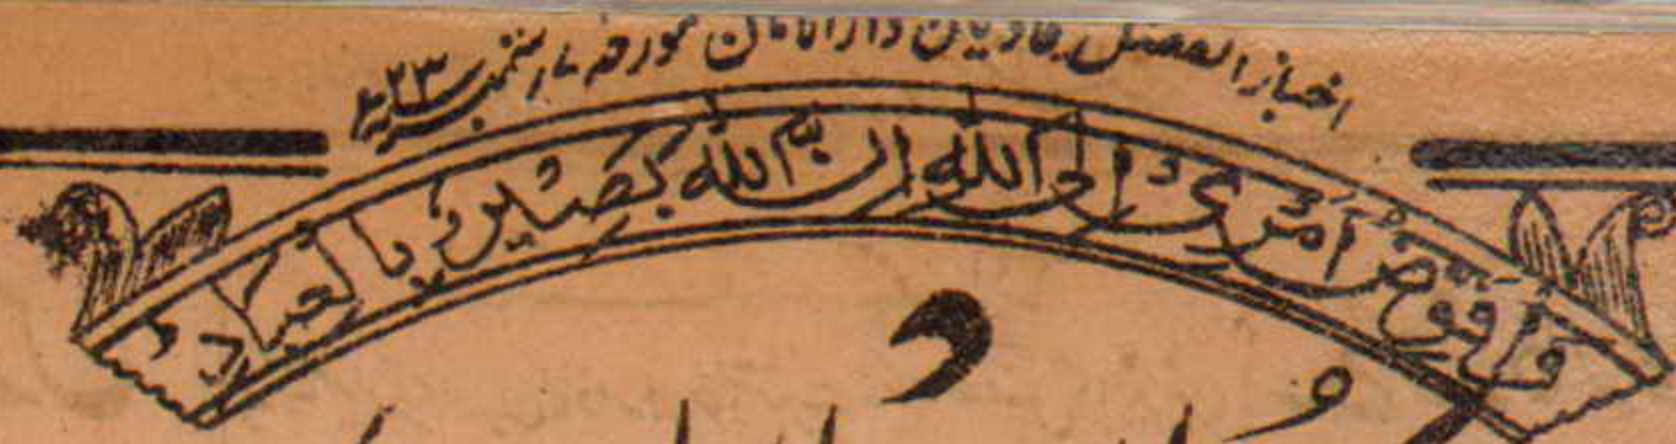 اخبار الفضل قادیان دارالامان مورخہ ستمبر ۱۹۲۳ء
وافوض امری الی اللہ ان اللہ بصیر بالعباد